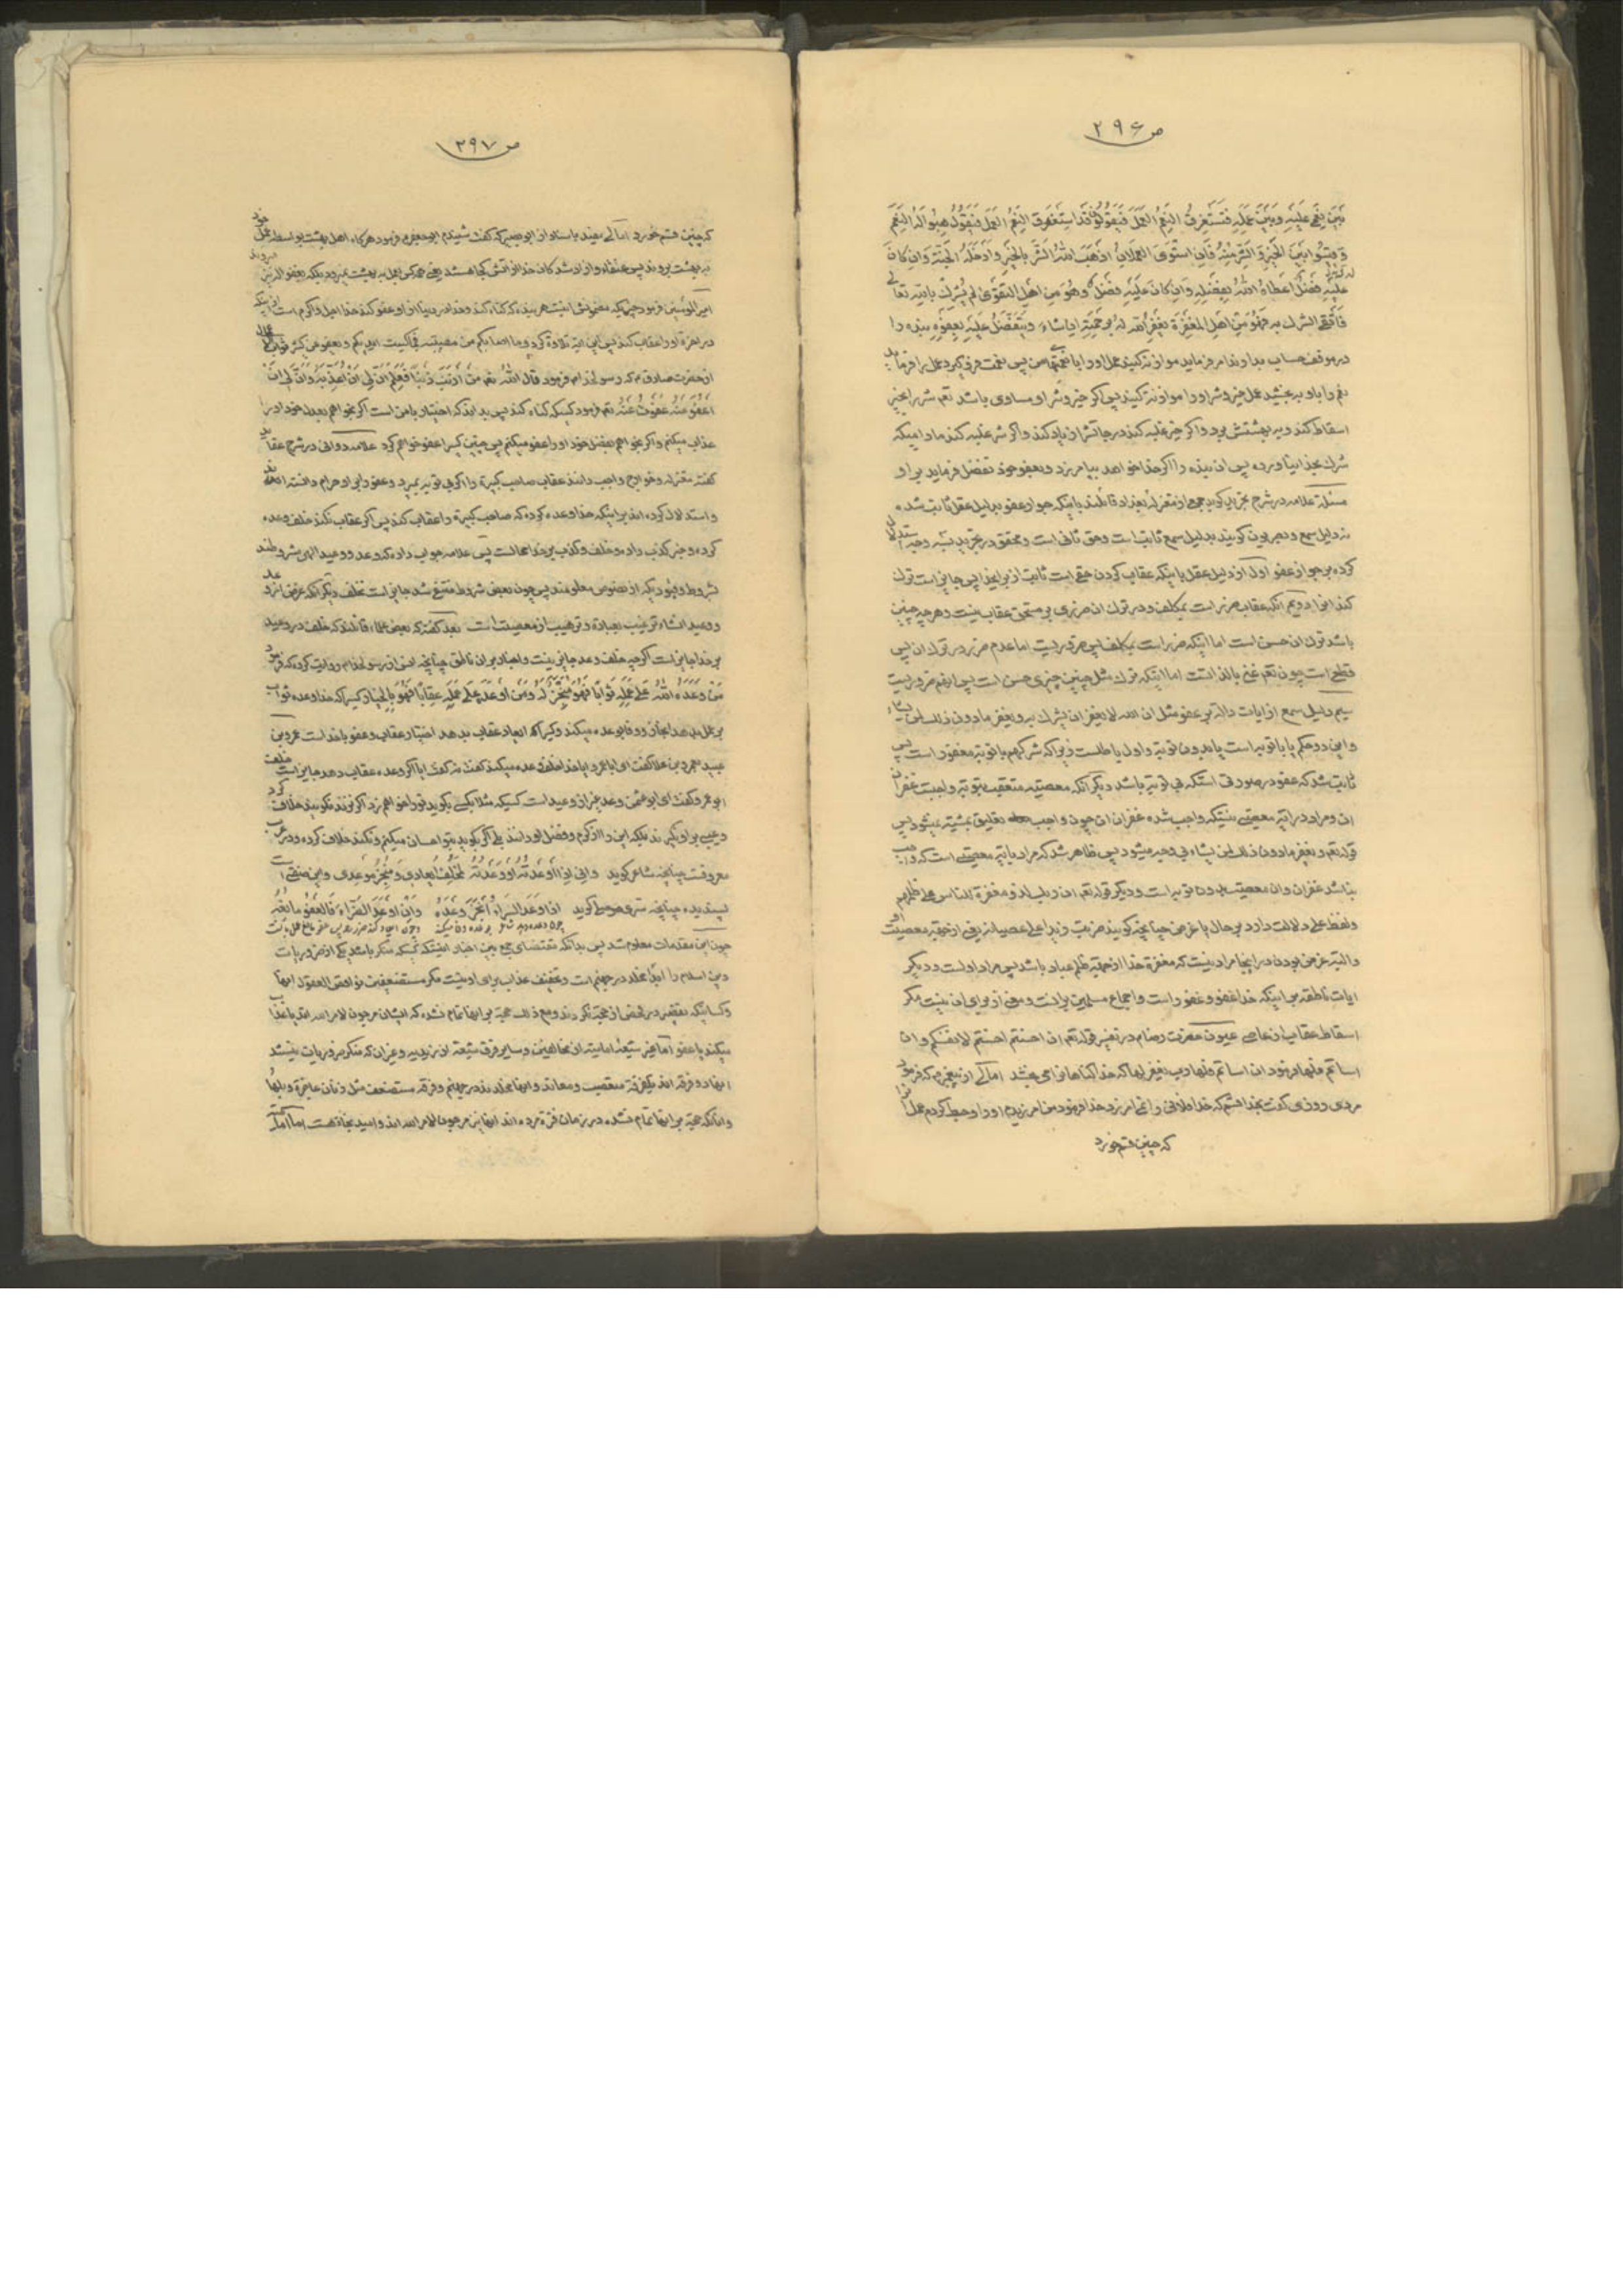 ص ٢٩۶
بَیْنَ نِعَمی عَلَیْهِ وَبَیْنَ عَمَلِهِ فَتَسْتَغْرِقُ النِّعَمُ العَمَلَ فَیَقُولُونَ قَدِ اسْتَغْرَقَ النِّعَمُ العَمَلَ فَیَقُولُ هِبُوا لَهُ النِّعَمَ
وَقِیسُوا بَیْنَ الخَیْرِ وَالشَّرِّ مِنْهُ فَاِنِ اسْتَوَی العَمَلانِ اَذْهَبَ اللهُ الشَّرَّ بِالخَیْرِ وَاَدْخَلَهُ الجَنَّةَ وَاِنْ کانَ
عَلَیْهِ فَضْلٌ اَعْطاهُ اللهُ بِفَضْلِهِ وَاِنْ کانَ عَلَیْهِ فَضْلٌ وَهُوَ مِنْ اَهْلِ التَّقْوی لَمْ یُشْرِکْ بِاللهِ تَعالی
فَاتَّقَی الشِّرْکَ بِهِ فَهُوَ مِنْ اَهْلِ المَغْفِرَةِ یَغْفِرُ اللهُ لَهُ بِرَحْمَتِهِ اِنْ شاءَ وَیَتَفَضَّلُ عَلَیْهِ بِعَفْوِهِ بنده را
در موقف حساب بدارند امر فرماید موازنه کنید عمل او را با نعمتهای من پس نعمت فرو گیرد عمل را فرماید
نعم را باو ببخشید عمل خیر و شر او را موازنه کنید پس اگر خیر و شر او مساوی باشد تعم شر را بخیر
اسقاط کند و به بهشتش برد و اگر خیر غلبه کند درجاتش را زیاد کند و اگر شر غلبه کند مادامیکه
شرک بخدا نیاورده پس آن بنده را اگر خدا خواهد بیامرزد و بعفو خود تفضل فرماید بر او
مسئلة علامه در شرح تجرید گوید جمعی از معتزله بغداد قائلند باینکه جواز عفو بدلیل عقل ثابت شده
نه دلیل سمع و بصریون گویند بدلیل سمع ثابت است و حق ثانی است و محقق در تجرید
کرده بر جواز عفو اول از دلیل عقل باینکه عقاب کردن حقی است ثابت از برای خدا پس جایز است ترک
کند آنرا دویم آنکه عقاب ضرر است بمکلف و در ترک آن ضرری بر مستحق عقاب نیست و هر چه چنین
باشد ترک آن حسن است اما اینکه ضرر است بمکلف پس ضروریست اما عدم ضرر در ترک آن پس
قطعی است چون تعم غنی بالذات است اما اینکه ترک مثل چنین چیزی حسن است پس آنهم ضروریست
سیم دلیل سمع از آیات داله بر عفو مثل ان الله لا یغفر ان یشرک به و یغفر مادون ذلک لمن یشاء
و این دو حکم یا با توبه است یا بدون توبه و اول باطلست زیرا که شرک هم با توبه مغفور است پس
ثابت شد که عفو در صورتی است که بی توبه باشد دیگر آنکه معصیت متعقب بتوبه واجبست غفران
آن و مراد در آیه معصیتی نیستکه واجب شده غفران آن چون واجب تعلیق بمشیة نمیشود پس
قوله تعم و یغفر مادون ذلک لمن یشاء بی وجه میشود پس ظاهر شد که مراد بآیه معصیتی است که واجب
نباشد غفران و آن معصیت بدون توبه است و دیگر قوله تعم ان ربک لذو مغفرة للناس علی ظلمهم
ولفظ علی دلالت دارد بر حال یا غرض چنانچه گویند ضربت زیدا علی عصیانه یعنی از جهة معصیت او
و البته غرض بودن در اینجا مراد نیست که مغفرة خدا از جهة ظلم عباد باشد پس مراد اولست و دیگر
آیات ناطقه بر اینکه خدا عفو و غفور است و اجماع مسلمین بر آنست و معنی از برای آن نیست مگر
اسقاط عقاب از عاصی عیون حضرت رضا م در تفسیر قوله تعم ان احسنتم احسنتم لانفسکم و ان
اساتم فلها فرمود ان اساتم فلها رب یغفر لها که خدا گناهانرا می بخشد امالی از پیغمبر م که فرمود
مردی روزی گفت بخدا قسم که خدا فلانی را نمی آمرزد خدا فرمود من آمرزیدم او را و حبط کردم عمل آنرا
که چنین قسم خورد
ص ٢٩٧
که چنین قسم خورد امالی مفید باسناد از ابو بصیر که گفت شنیدم ابو جعفر م فرمود هرگاه اهل بهشت بواسطه عمل خود
به بهشت بروند پس عتقاء و آزاد شدگان خدا از آتش کجا هستند یعنی همه کس بعمل به بهشت نمیرود بلکه بعفو
امیر المؤمنین فرمود چیزیکه مضمونش اینست هر بنده که گناه کند و خدا در دنیا از او عفو کند خدا اجل و اکرم است از اینکه
در آخرة او را عقاب کند پس این آیه تلاوة کرد و ما اصابکم من مصیبة فبما کسبت ایدیکم و یعفو عن کثیر
از حضرت صادق م که رسولخدا م فرمود قالَ اللهُ تعم مَنْ اَذْنَبَ ذَنْباً فَعَلِمَ اَنَّ لی اَنْ اُعَذِّبَهُ وَاَنَّ لی اَنْ
اَعْفُوَ عَنْهُ عَفَوْتُ عَنْهُ تعم فرمود کسیکه گناه کند پس بداند که اختیار با من است اگر بخواهم بعدل خود او را
عذاب میکنم و اگر بخواهم بفضل خود او را عفو میکنم پس چنین کسیرا عفو خواهم کرد علامه دوانی در شرح عقاید
گفته معتزله و خوارج واجب دانند عقاب صاحب کبیرة را اگر بی توبه بمیرد و عفو را بر او حرام دانسته اند
و استدلال کرده اند بر اینکه خدا وعده کرده که صاحب کبیرة را عقاب کند پس اگر عقاب نکند خلف وعده
کرده و خبر کذب داده و خلف و کذب بر خدا محالست پس علامه جواب داده که وعد و وعید الهی مشروطند
بشروط و قیود دیگر از نصوص معلومند پس چون بعض شروط منتفی شد جایز است تخلف دیگر آنکه غرض از وعد
و وعید انشاء ترغیب بعبادة و ترهیب از معصیت است بعد گفته که بعض علماء قائلند که خلف در وعید
بر خدا جایز است اگر چه خلف وعد جایز نیست و اخبار بر آن ناطق چنانچه انس از رسولخدا م روایت کرده که فرمود
مَنْ وَعَدَهُ اللهُ عَلی عَمَلِهِ ثَواباً فَهُوَ مُنْجِزٌ لَهُ وَمَنْ اَوْعَدَهُ عَلی عَمَلِهِ عِقاباً فَهُوَ بِالخِیارِ کسیرا که خدا وعده ثواب
بر عمل بدهد و وفا بوعده میکند و کسیرا که ایعاد عقاب بدهد اختیار عقاب و عفو با خداست عمرو بن
عبید بعمرو بن علا گفت ای ابا عمرو آیا خدا خلف وعده میکند گفت نه گفت آیا اگر وعده عقاب دهد جایز است خلف
ابو عمرو گفت ای ابو عثمن وعد غیر از وعید است کسیکه مثلا بکسی بگوید تو را خواهم زد اگر نزند نگویند خلاف کرد
و عیبی بر او نگیرند بلکه این را از کرم و فضل او دانند بلی اگر بگوید بتو احسان میکنم و نکند خلاف کرده و در عرب
معروفست چنانچه شاعر گوید وَاِنّی اِذا اَوْعَدْتُهُ اَوْ وَعَدْتُهُ لَمُخْلِفُ ایعادی وَمُنْجِزُ مَوْعِدی و این صفتی است
پسندیده چنانچه سری موصلی گوید اِذا وَعَدَ السَّرّاءَ اَنْجَزَ وَعْدَهُ وَاِنْ اَوْعَدَ الضَّرّاءَ فَالعَفْوُ مانِعُهُ
چون این مقدمات معلوم شد پس بدانکه مقتضای جمع بین اخبار اینست که کسیکه منکر باشد یکی از ضروریات
دین اسلام را ایشان مخلد در جهنم است و تخفیف عذاب برای او نیست مگر مستضعفین نواقص العقول آنها
و کسانیکه تقصیر در فحص از حجة نکردند و مع ذلک حجة بر آنها تمام نشده که ایشان مرجون لامر الله اند یا عذاب
میکند یا عفو اما غیر شیعهٔ امامیه از مخالفین و سایر فرق شیعه از زیدیه و غیر آن که منکر ضروریات نیستند
آنها دو فرقه اند یکفرقه متعصب و معاند و آنها مخلدند در جهنم و فرقه مستضعف مثل زنان عاجزة و بلها
و آنانکه حجة بر آنها تمام نشده در زمان فترة مرده اند آنها نیز مرجون لامر الله اند و امید نجاة هست